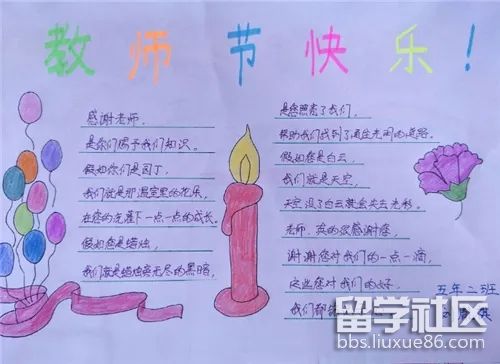 教师节快乐！
感谢老师，
是你们赐予我们知识。
假如你们是园丁，
我们就是那温室里的花朵，
在您的充灌下一点一点的成长。
假如您是蜡烛，
我们就是蜡烛旁无尽的黑暗，
是您照亮了我们，
帮助我们找到了通往光明的道路。
假如您是白云，
我们就是天空，
天空没了白云就会失去光彩。
老师，我的很感谢您，
谢谢您对我们的一点一滴，
这些您对我们的好，
我们都
五年二班
留学社区
bbs.liuxue86.com